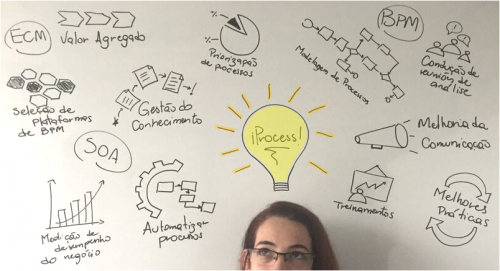 ECM
Valor Agregado
%
%
Priorização
de processos
BPM
Modelagem de Processos
Condução de
reunião de
análise
Seleção de
Plataformas
de BPM
Gestão do
Conhecimento
¡Process!
Melhoria da
Comunicação
SOA
Medição de
desempenho
do negócio
Automatizar
processos
Treinamentos
Melhores
Práticas